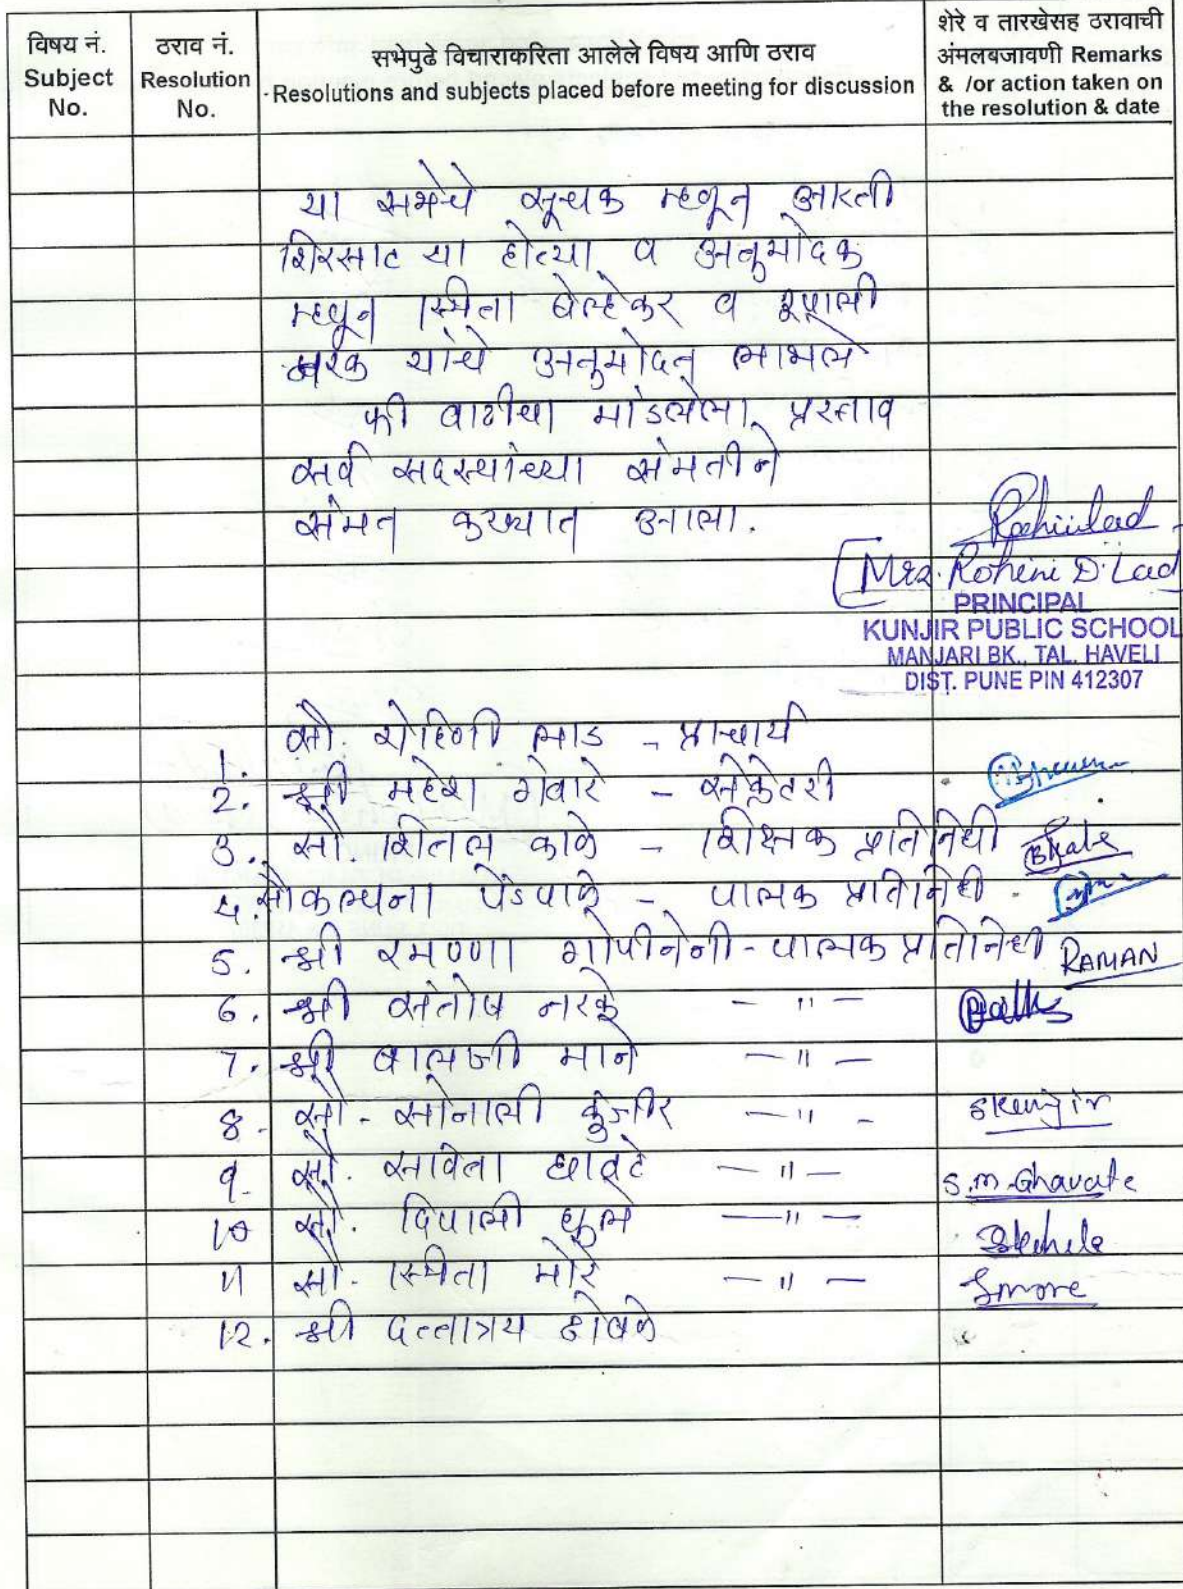 विषय नं.
Subject
No.
ठराव नं.
Resolution
No.
सभेपुढे विचाराकरिता आलेले विषय आणि ठराव
Resolutions and subjects placed before meeting for discussion
शेरे व तारखेसह ठरावाची
अंमलबजावणी Remarks
& /or action taken on
the resolution & date
या सभेचे सूचक म्हणून आरती
शिरसाट या होत्या व अनुमोदक
म्हणून स्मिता वेल्हेकर व रूपाली
यांचे अनुमोदन लाभले
फी वाढीचा मांडलेला प्रस्ताव
सर्व सदस्यांच्या संमतीने
संमत करण्यात आला.
Mrs. Rohini D. Lad
PRINCIPAL
KUNJIR PUBLIC SCHOOL
MANJARI BK., TAL. HAVELI
DIST. PUNE PIN 412307
1. सौ. रोहिणी लाड - प्राचार्य
2. श्री महेश गेवारे - सेक्रेटरी
3. सौ. शितल काळे - शिक्षक प्रतिनिधी
4. सौ कल्पना पेंडपाळे - पालक प्रतिनिधी
5. श्री रमण्णा गोपीनेनी - पालक प्रतिनिधी RAMAN
6. श्री संतोष नरके - " -
7. श्री बालाजी माने - " -
8. सौ - सोनाली कुंजीर - " - skunjir
9. सौ. सविता घावटे - " - S.m.Ghavate
10 सौ. दिपाली घुले - " -
11 सौ. स्मिता मोरे - " - Smore
12. श्री दत्तात्रय ढोबळे